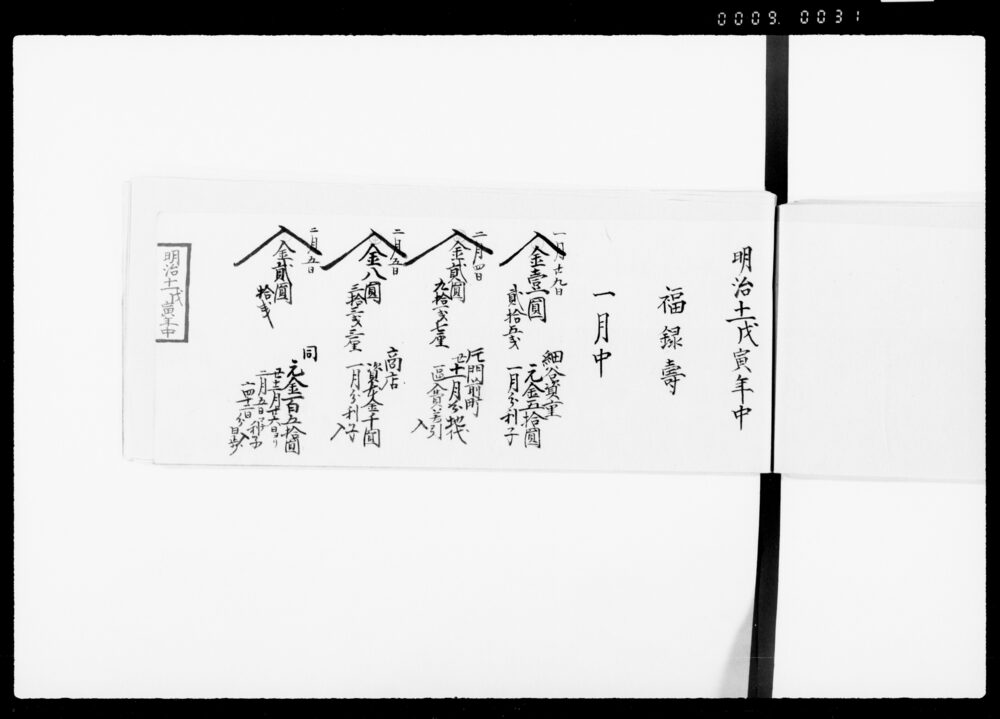 0009 0031
明治十一戊寅年中
福録壽
一月中
一月廿九日
金壹圓
貳拾五戔
細谷資重
元金五拾圓
一月分利子
二月四日
金貳圓
九拾一戔七厘
元門前町
廿十一月分地代
區入費差引
入
二月五日
金八圓
三拾三戔三厘
商店
資本金千圓
一月分利子
入
二月五日
金貳圓
拾戔
同
元金百五拾圓
二月五日
明治十一戊寅年中